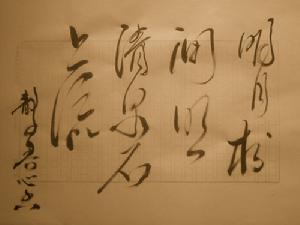 明月松
间照
清泉石
上流